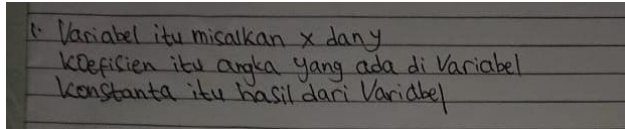 1. Variabel itu misalkan x dan y
Koefisien itu angka yang ada di Variabel
Konstanta itu hasil dari Variabel